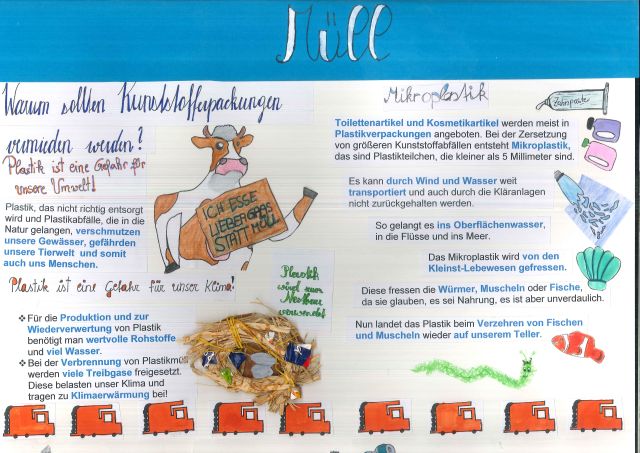 Müll
Warum sollten Kunststoffverpackungen
vermieden werden?
Plastik ist eine Gefahr für
unsere Umwelt!
Plastik, das nicht richtig entsorgt
wird und Plastikabfälle, die in die
Natur gelangen, verschmutzen
unsere Gewässer, gefährden
unsere Tierwelt und somit
auch uns Menschen.
ICH ESSE
LIEBER GRAS
STATT MÜLL
Plastik ist eine Gefahr für unser Klima!
❖ Für die Produktion und zur
Wiederverwertung von Plastik
benötigt man wertvolle Rohstoffe
und viel Wasser.
❖ Bei der Verbrennung von Plastikmüll
werden viele Treibgase freigesetzt.
Diese belasten unser Klima und
tragen zu Klimaerwärmung bei!
Plastik
wird zum
Nestbau
verwendet
Mikroplastik
Zahnpasta
Toilettenartikel und Kosmetikartikel werden meist in
Plastikverpackungen angeboten. Bei der Zersetzung
von größeren Kunststoffabfällen entsteht Mikroplastik,
das sind Plastikteilchen, die kleiner als 5 Millimeter sind.
Es kann durch Wind und Wasser weit
transportiert und auch durch die Kläranlagen
nicht zurückgehalten werden.
So gelangt es ins Oberflächenwasser,
in die Flüsse und ins Meer.
Das Mikroplastik wird von den
Kleinst-Lebewesen gefressen.
Diese fressen die Würmer, Muscheln oder Fische,
da sie glauben, es sei Nahrung, es ist aber unverdaulich.
Nun landet das Plastik beim Verzehren von Fischen
und Muscheln wieder auf unserem Teller.